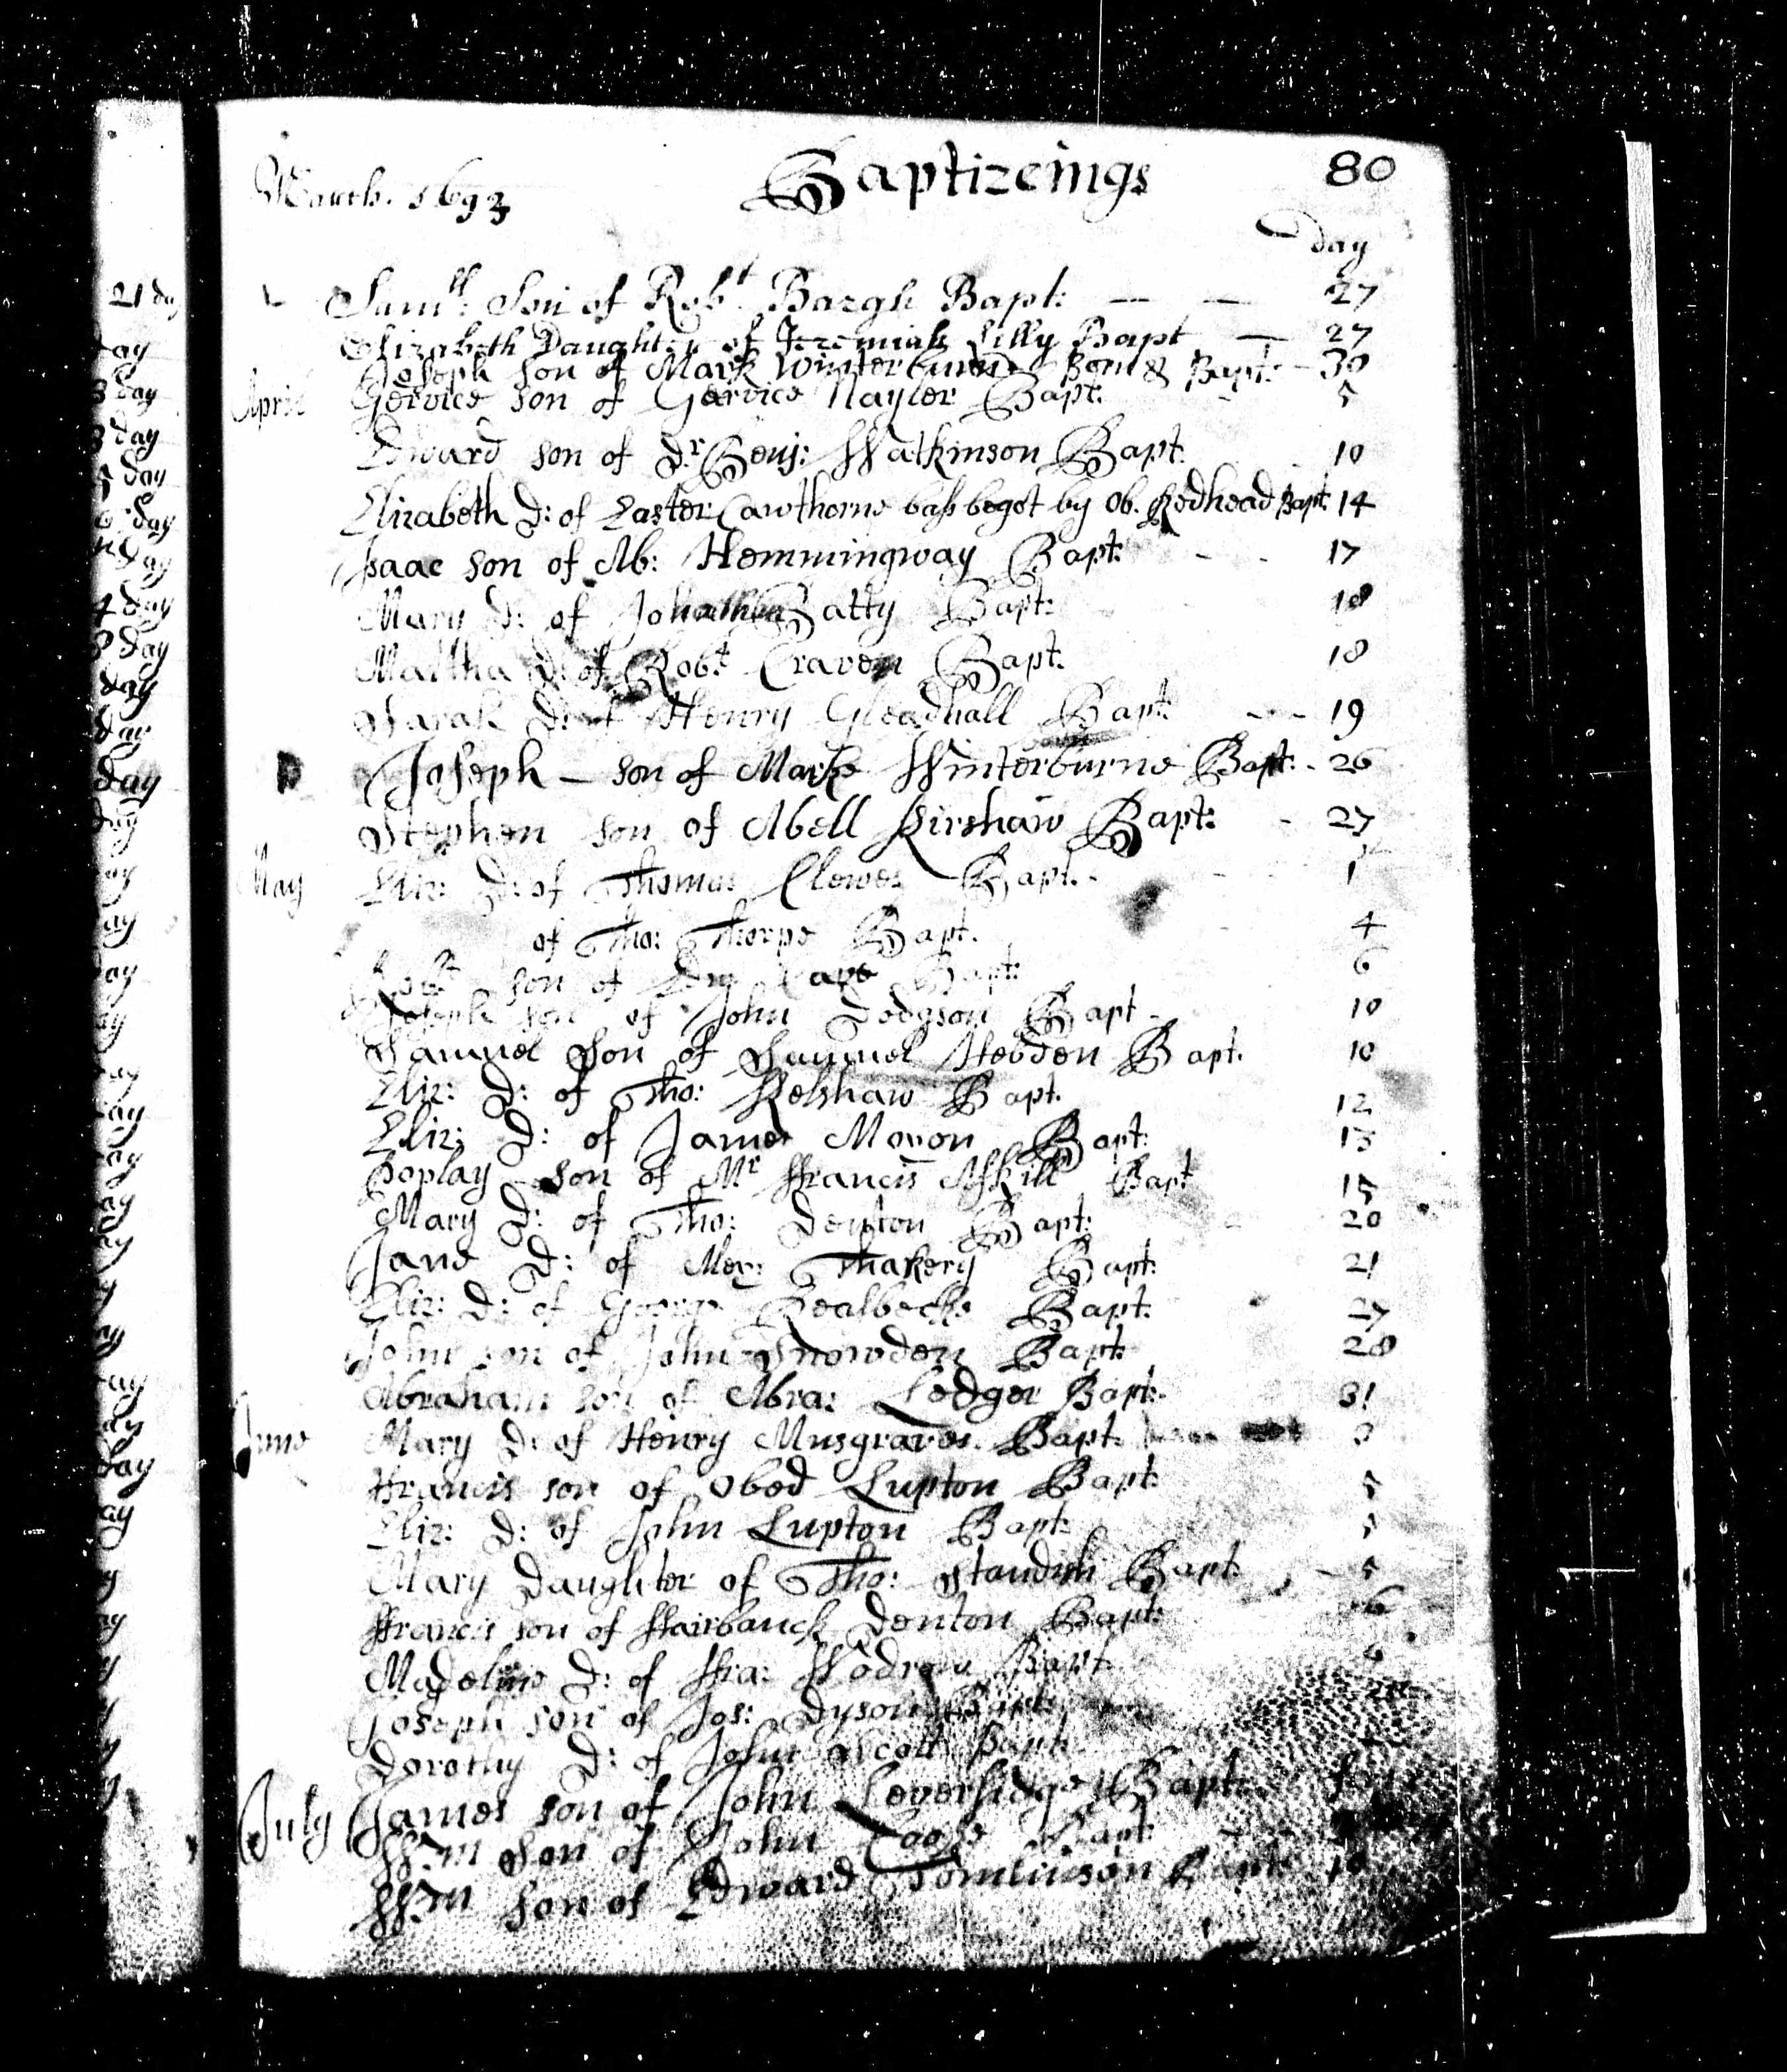 80
March. 1693 Baptizeings
day
Samll: Son of Robt Bargh Bapt: 27
Elizabeth Daughter of Jeremiah Lilly Bapt 27
Joseph son of Mark Winterburne Born & Bapt: 30
April Gervice son of Gervice Nayler Bapt: 5
Edward son of Dr Benj: Watkinson Bapt. 10
Elizabeth D: of Easter Cawthorne bass begot by Ob. Redhead Bapt: 14
Isaac son of Ab: Hemmingway Bapt: 17
Mary D: of Jonathan Batty Bapt: 18
Martha D: of Robt Craven Bapt: 18
Sarah D: of Henry Gleadhall Bapt: 19
Joseph – son of Marke Winterburne Bapt: 26
Stephen son of Abell Kirshaw Bapt: 27
May Eliz: D: of Thomas Clewes Bapt. 1
of Tho: Thorpe Bapt. 4
Robt son of Cave Bapt: 6
Joseph son of John Dodgson Bapt 10
Samuel Son of Samuel Hebden Bapt. 10
Eliz: D: of Tho: Kelshaw Bapt. 12
Eliz: D: of James Moxon Bapt: 13
Poplay son of Mr Francis Askill Bapt 15
Mary D: of Tho: Denton Bapt: 20
Jane D: of Mer: Thakery Bapt: 21
Eliz: D: of George Bapt: 27
John son of John Snowden Bapt: 28
Abraham son of Abra: Ledger Bapt: 31
June Mary D: of Henry Musgraves Bapt: 3
Francis son of Obed Lupton Bapt: 5
Eliz: D: of John Lupton Bapt: 5
Mary Daughter of Tho: Standish Bapt 5
Francis son of Fairbanck Denton Bapt: 6
Madeline D: of Fra: Bapt
Joseph son of Jos: Dyson Bapt:
Dorothy D: of John Scott Bapt
July James son of John Leversidge Bapt:
Wm son of John Bapt
Wm son of Edward Tomlinson Bapt 10
21 day
day
3 day
3 day
5 day
6 day
day
4 day
8 day
day
day
day